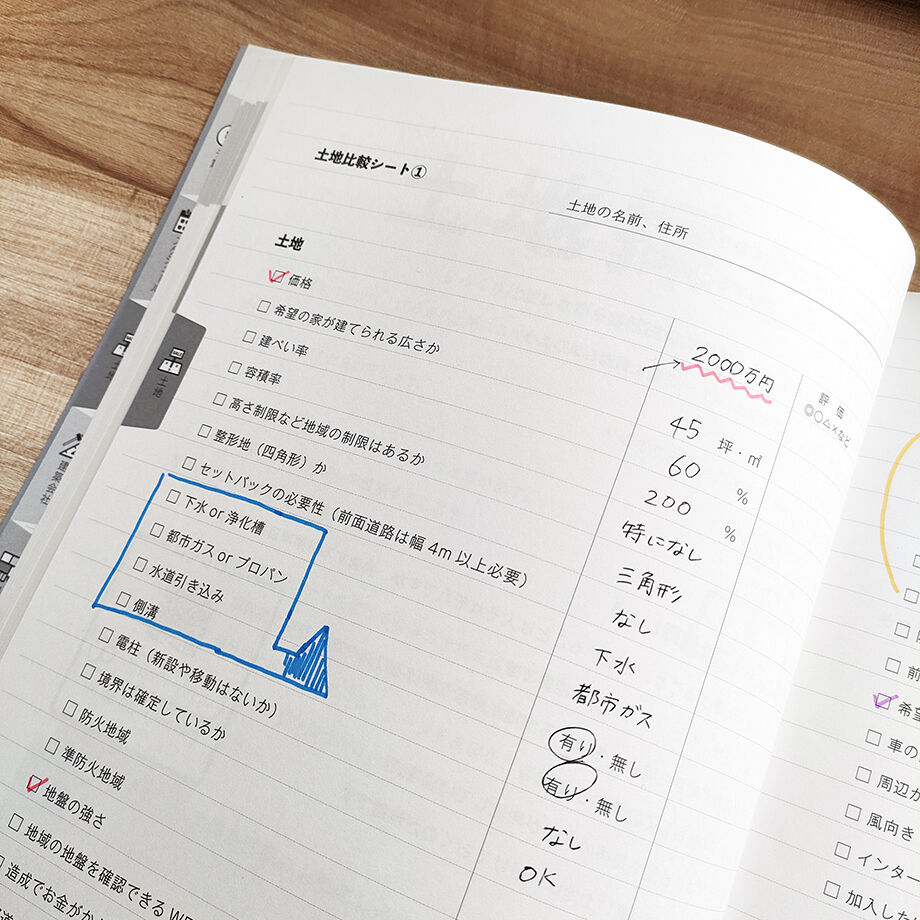 土地比較シート①
土地の名前、住所
土地
価格
2000万円
評価
◎○△×など
希望の家が建てられる広さか
45 坪・㎡
建ぺい率
60 %
容積率
200 %
高さ制限など地域の制限はあるか
特になし
整形地(四角形)か
三角形
セットバックの必要性(前面道路は幅 4m 以上必要)
なし
下水 or 浄化槽
下水
都市ガス or プロパン
都市ガス
水道引き込み
有り・無し
側溝
有り・無し
電柱(新設や移動はないか)
なし
境界は確定しているか
OK
防火地域
準防火地域
地盤の強さ
地域の地盤を確認できる
造成でお金が
土地
SALE
建築会社
前
希望
車の
周辺
風向き
インター
加入した